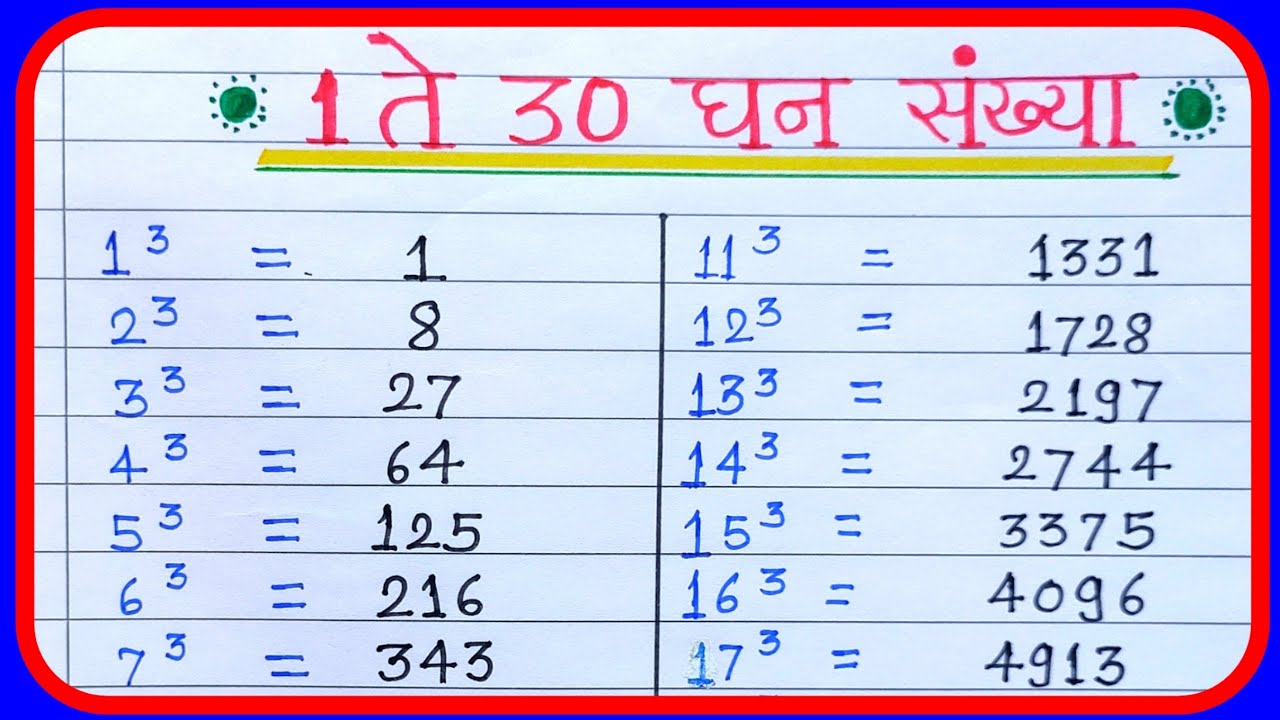 1 ते 30 घन संख्या
1³ = 1
2³ = 8
3³ = 27
4³ = 64
5³ = 125
6³ = 216
7³ = 343
11³ = 1331
12³ = 1728
13³ = 2197
14³ = 2744
15³ = 3375
16³ = 4096
17³ = 4913